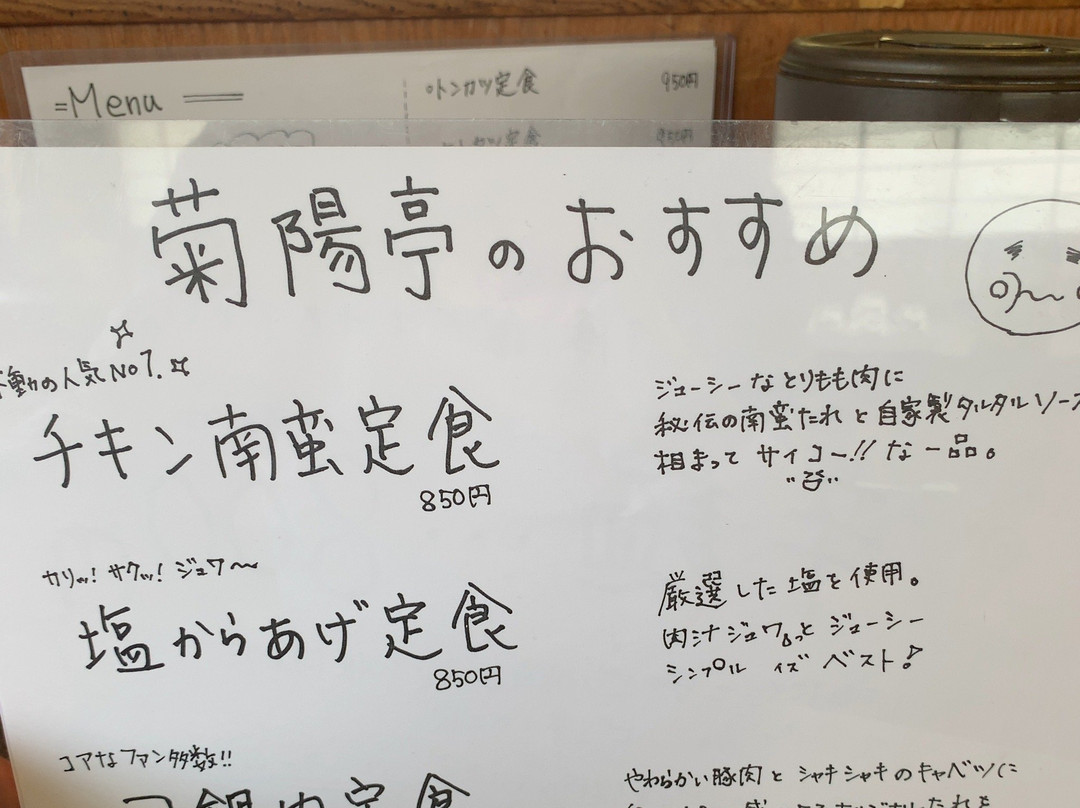 =Menu
○トンカツ定食 950円
菊陽亭のおすすめ
動の人気No1.
チキン南蛮定食
850円
ジューシーなとりもも肉に
秘伝の南蛮たれと自家製タルタルソース
相まってサイコー!!な一品。
カリッ!サクッ!ジュワ〜
塩からあげ定食
850円
厳選した塩を使用。
肉汁ジュワっとジューシー
シンプル イズ ベスト!
コアなファン多数!!
定食
やわらかい豚肉とシャキシャキのキャベツに